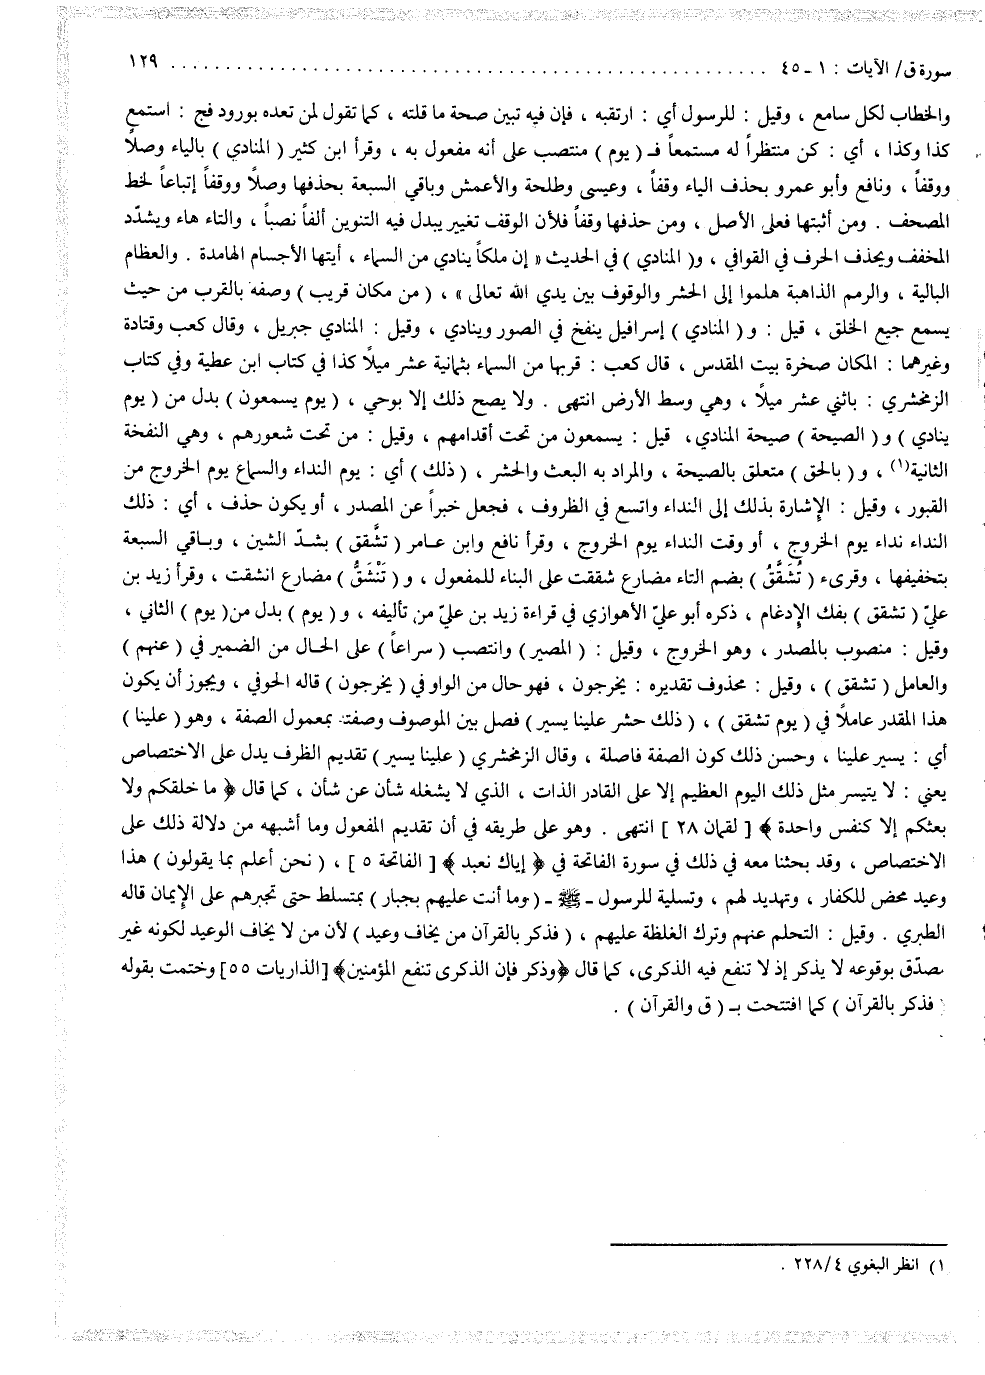 سورة ق/ الآيات : ١ ـ ٤٥ . . . . . . . . . . . . . . . . . . . . . . . . . . . . . . . . . . . . . . . . . . . . . . . ١٢٩
والخطاب لكل سامع ، وقيل : للرسول أي : ارتقبه ، فإن فيه تبين صحة ما قلته ، كما تقول لمن تعده بورود فج : استمع
كذا وكذا ، أي : كن منتظراً له مستمعاً فـ ( يوم ) منتصب على أنه مفعول به ، وقرأ ابن كثير ( المنادي ) بالياء وصلاً
ووقفاً ، ونافع وأبو عمرو بحذف الياء وقفاً ، وعيسى وطلحة والأعمش وباقي السبعة بحذفها وصلاً ووقفاً إتباعاً لخط
المصحف . ومن أثبتها فعلى الأصل ، ومن حذفها وقفاً فلأن الوقف تغيير يبدل فيه التنوين ألفاً نصباً ، والتاء هاء ويشدّد
المخفف ويحذف الحرف في القوافي ، و( المنادي ) في الحديث « إن ملكاً ينادي من السماء ، أيتها الأجسام الهامدة . والعظام
البالية ، والرمم الذاهبة هلموا إلى الحشر والوقوف بين يدي الله تعالى » ، ( من مكان قريب ) وصفه بالقرب من حيث
يسمع جميع الخلق ، قيل : و ( المنادي ) إسرافيل ينفخ في الصور وينادي ، وقيل : المنادي جبريل ، وقال كعب وقتادة
وغيرهما : المكان صخرة بيت المقدس ، قال كعب : قربها من السماء بثمانية عشر ميلاً كذا في كتاب ابن عطية وفي كتاب
الزمخشري : باثني عشر ميلاً ، وهي وسط الأرض انتهى . ولا يصح ذلك إلا بوحي ، ( يوم يسمعون ) بدل من ( يوم
ينادي ) و ( الصيحة ) صيحة المنادي، قيل : يسمعون من تحت أقدامهم ، وقيل : من تحت شعورهم ، وهي النفخة
الثانية(١) ، و ( بالحق ) متعلق بالصيحة ، والمراد به البعث والحشر ، ( ذلك ) أي : يوم النداء والسماع يوم الخروج من
القبور ، وقيل : الإشارة بذلك إلى النداء واتسع في الظروف ، فجعل خبراً عن المصدر ، أو يكون حذف ، أي : ذلك
النداء نداء يوم الخروج ، أو وقت النداء يوم الخروج ، وقرأ نافع وابن عامر ( تشّقق ) بشدّ الشين ، وباقي السبعة
بتخفيفها ، وقرىء ( تُشَقَّقُ ) بضم التاء مضارع شققت على البناء للمفعول ، و ( تَنْشَقُّ ) مضارع انشقت ، وقرأ زيد بن
عليّ ( تشقق ) بفك الإدغام ، ذكره أبو عليّ الأهوازي في قراءة زيد بن عليّ من تأليفه ، و ( يوم ) بدل من( يوم ) الثاني ،
وقيل : منصوب بالمصدر ، وهو الخروج ، وقيل : ( المصير ) وانتصب ( سراعاً ) على الحال من الضمير في ( عنهم )
والعامل ( تشقق ) ، وقيل : محذوف تقديره : يخرجون ، فهو حال من الواو في ( يخرجون ) قاله الحوفي ، ويجوز أن يكون
هذا المقدر عاملاً في ( يوم تشقق ) ، ( ذلك حشر علينا يسير ) فصل بين الموصوف وصفته بمعمول الصفة ، وهو ( علينا )
أي : يسير علينا ، وحسن ذلك كون الصفة فاصلة ، وقال الزمخشري ( علينا يسير ) تقديم الظرف يدل على الاختصاص
يعني : لا يتيسر مثل ذلك اليوم العظيم إلا على القادر الذات ، الذي لا يشغله شأن عن شأن ، كما قال ﴿ ما خلقكم ولا
بعثكم إلا كنفس واحدة ﴾ [ لقمان ٢٨ ] انتهى . وهو على طريقه في أن تقديم المفعول وما أشبهه من دلالة ذلك على
الاختصاص ، وقد بحثنا معه في ذلك في سورة الفاتحة في ﴿ إياك نعبد ﴾ [ الفاتحة ٥ ] ، ( نحن أعلم بما يقولون ) هذا
وعيد محض للكفار ، وتهديد لهم ، وتسلية للرسول ـ ﷺ ـ ( وما أنت عليهم بجبار ) بمتسلط حتى تجبرهم على الإيمان قاله
الطبري . وقيل : التحلم عنهم وترك الغلظة عليهم ، ( فذكر بالقرآن من يخاف وعيد ) لأن من لا يخاف الوعيد لكونه غير
مصدّق بوقوعه لا يذكر إذ لا تنفع فيه الذكرى، كما قال ﴿وذكر فإن الذكرى تنفع المؤمنين﴾ [الذاريات ٥٥] وختمت بقوله
( فذكر بالقرآن ) كما افتتحت بـ ( ق والقرآن ) .
١) انظر البغوي ٤/ ٢٢٨ .